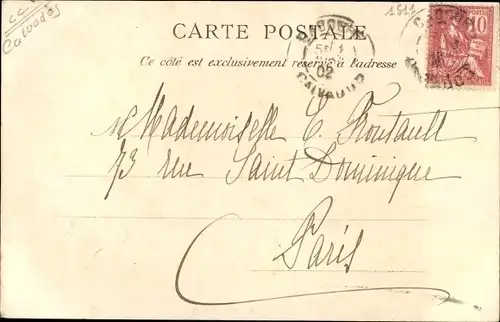 CC
Calvados
1511
CARTE POSTALE
Ce côté est exclusivement réservé à l'adresse
02
CALVADOS
10
Mademoiselle E.
73 rue Saint Dominique
Paris